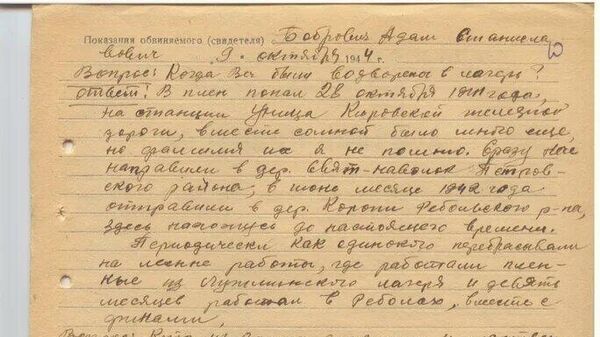 Показания обвиняемого (свидетеля) Бобрович Адам Станисла
вович 9. октября 1944 г.
Вопрос: Когда Вы были водворены в лагерь?
Ответ: В плен попал 28 октября 1941 года,
на станции Уница Кировской железной
дороги, вместе со мной было много еще,
но фамилия их я не помню. Сразу нас
направили в дер. Свят-наволок Петров-
ского района, в июне месяце 1942 года
отправили в дер. Коропи Ребольского р-на,
здесь нахожусь до настоящего времени.
Периодически как одинокого перебрасывали
на лесные работы, где работали плен-
ные из лагеря и девять
месяцев работал в Реболах, вместе с
финами.